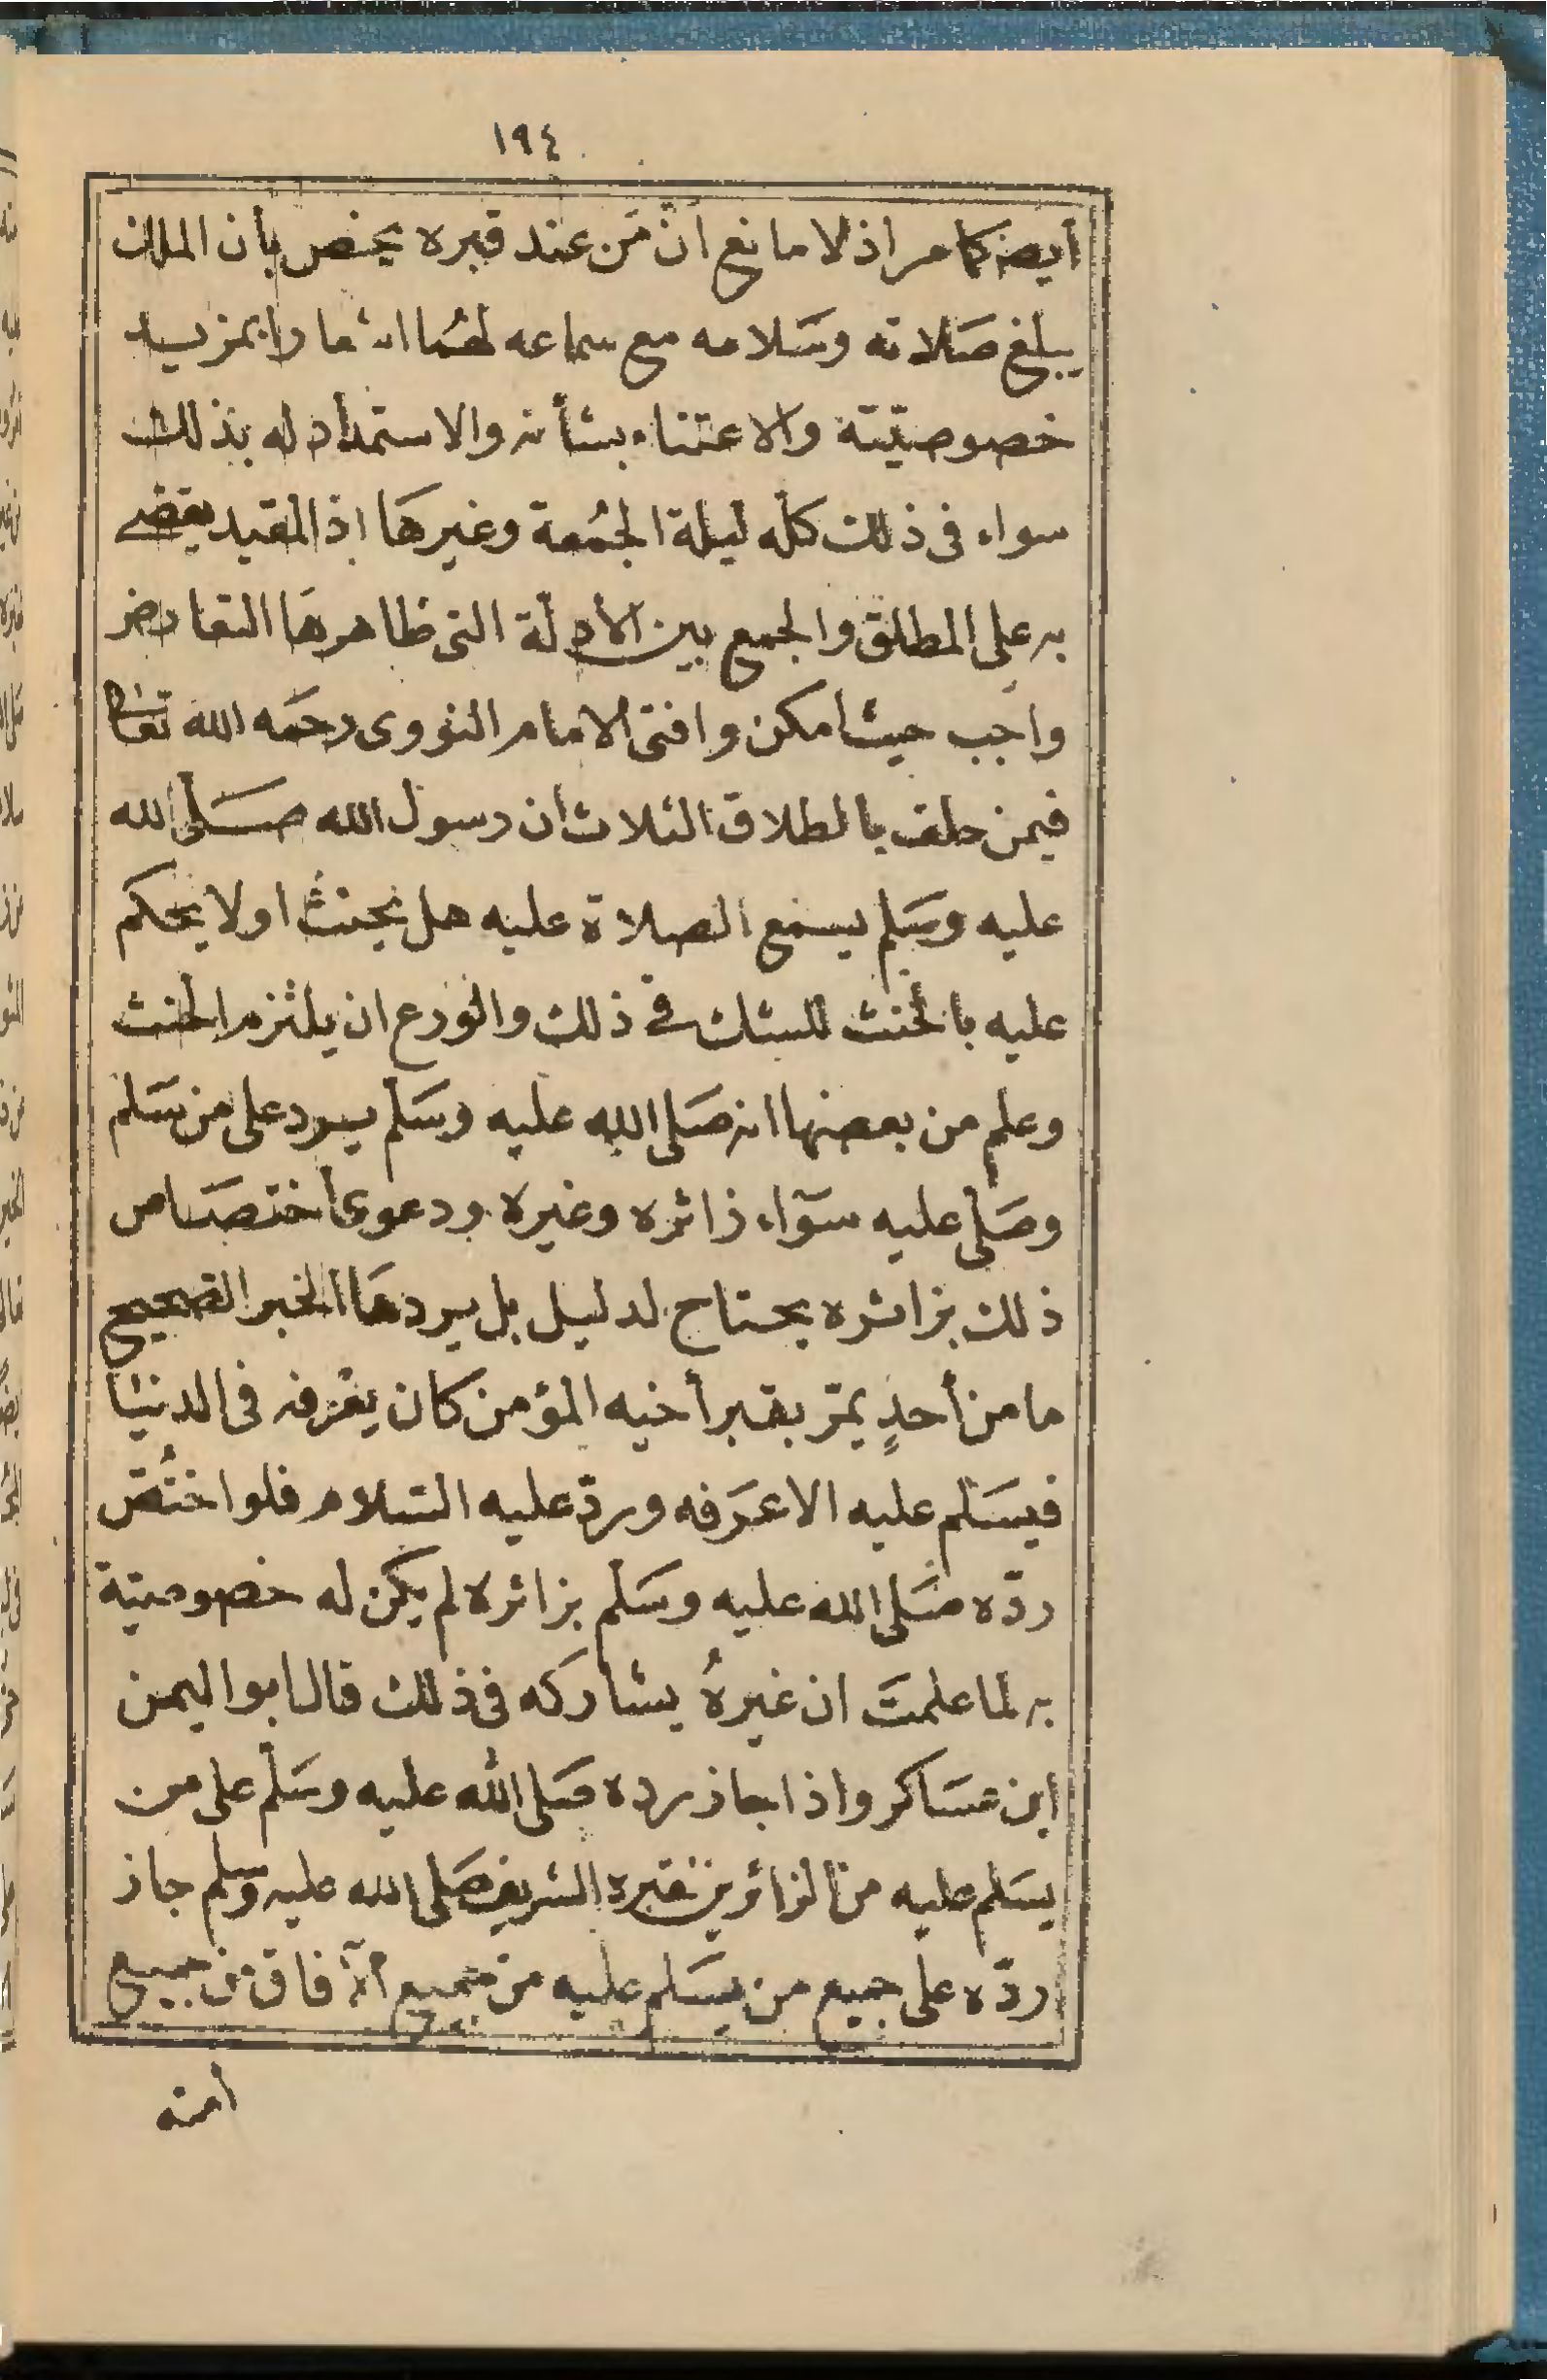 ١٩٤
أيضا كما مر اذ لا مانع أنّ مَن عند قبره يختص بأن الملك
يبلغ صَلاته وسَلامه مع سماعه لهُما اشعارا بمزيد
خصوصيّته والاعتناء بشأنه والاستمداد له بذلك
سواء فى ذلك كله ليلة الجُمعة وغيرهَا اذ المقيد يقضى
به على المطلق والجمع بين الأدلة التى ظاهرهَا التعارض
واجب حيث امكن وافتى الامام النووى رحمَه الله تعالى
فيمن حلف بالطلاق الثلاث أن رسول الله صَلى الله
عليه وسَلم يسمع الصلاة عليه هل يحنث اولا يحكم
عليه بالحنث للشك فى ذلك والورع ان يلتزم الحنث
وعلم من بعضها انه صَلى الله عليه وسَلم يرد على من سَلم
وصَلى عليه سوآء زائره وغيره ودعوى أختصَاص
ذلك بزائره يحتاج لدليل بل يردهَا الخبر الصحيح
ما من أحدٍ يمرّ بقبر أخيه المؤمن كان يعرفه فى الدنيا
فيسَلم عليه الا عرَفه وردّ عليه السّلام فلو اختُصّ
ردّه صَلى الله عليه وسَلم بزائره لم يكن له خصوصيّة
به لما علمتَ ان غيرهُ يشاركه فى ذلك قال ابو اليمن
ابن عسَاكر واذا جاز رده صَلى الله عليه وسَلم على من
يسَلم عليه من الزائرين لقبره الشريف صَلى الله عليه وسلم جاز
ردّه على جميع من يسَلم عليه من جميع الآفاق من جميع
أمته